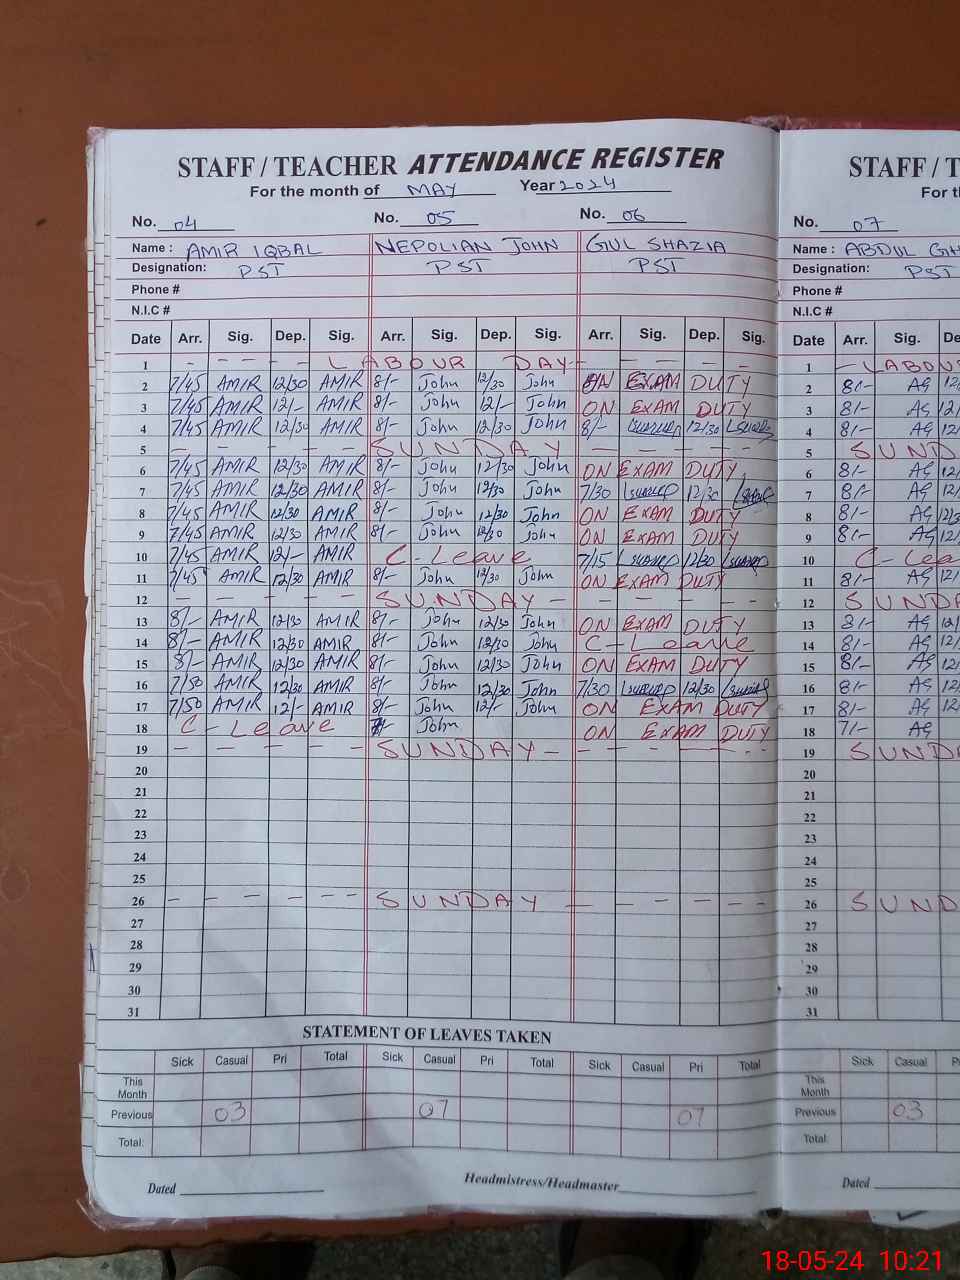 STAFF / TEACHER ATTENDANCE REGISTER STAFF / T
For the month of MAY Year 2024 For th
No. 04 No. 05 No. 06 No. 07
Name : AMIR IQBAL NEPOLIAN JOHN GUL SHAZIA Name : ABDUL GH
Designation: PST PST PST Designation: PST
Phone # Phone #
N.I.C # N.I.C #
Date Arr. Sig. Dep. Sig. Arr. Sig. Dep. Sig. Arr. Sig. Dep. Sig. Date Arr. Sig. De
1 - - - - - LABOUR DAY - - - - 1 - LABOU
2 7/45 AMIR 12/30 AMIR 8/- John 12/30 John ON EXAM DUTY 2 8/- AG 12/
3 7/45 AMIR 12/- AMIR 8/- John 12/- John ON EXAM DUTY 3 8/- AG 12/
4 7/45 AMIR 12/30 AMIR 8/- John 12/30 John 8/- 12/30 4 8/- AG 12/
5 - - - - - SUNDAY - - - - - 5 SUND
6 7/45 AMIR 12/30 AMIR 8/- John 12/30 John ON EXAM DUTY 6 8/- AG 12/
7 7/45 AMIR 12/30 AMIR 8/- John 12/30 John 7/30 12/30 7 8/- AG 12/
8 7/45 AMIR 12/30 AMIR 8/- John 12/30 John ON EXAM DUTY 8 8/- AG 12/3
9 7/45 AMIR 12/30 AMIR 8/- John 12/30 John ON EXAM DUTY 9 8/- AG 12/
10 7/45 AMIR 12/- AMIR C - Leave 7/15 12/30 10 C - Lea
11 7/45 AMIR 12/30 AMIR 8/- John 12/30 John ON EXAM DUTY 11 8/- AG 12/
12 - - - - - SUNDAY - - - - - - 12 SUNDA
13 8/- AMIR 12/30 AMIR 8/- John 12/30 John ON EXAM DUTY 13 8/- AG 12/
14 8/- AMIR 12/30 AMIR 8/- John 12/30 John C - Leave 14 8/- AG 12/
15 8/- AMIR 12/30 AMIR 8/- John 12/30 John ON EXAM DUTY 15 8/- AG 12/
16 7/50 AMIR 12/30 AMIR 8/- John 12/30 John 7/30 12/30 16 8/- AG 12/
17 7/50 AMIR 12/- AMIR 8/- John 12/- John ON EXAM DUTY 17 8/- AG 12/
18 C - Leave 7/- John ON EXAM DUTY 18 7/- AG
19 - - - - - SUNDAY - - - - - 19 SUNDA
20 20
21 21
22 22
23 23
24 24
25 25
26 - - - - - SUNDAY - - - - - - 26 SUND
27 27
28 28
29 29
30 30
31 31
STATEMENT OF LEAVES TAKEN
Sick Casual Pri Total Sick Casual Pri Total Sick Casual Pri Total Sick Casual P
This Month This Month
Previous 03 07 07 Previous 03
Total: Total:
Dated Headmistress/Headmaster Dated
18-05-24 10:21